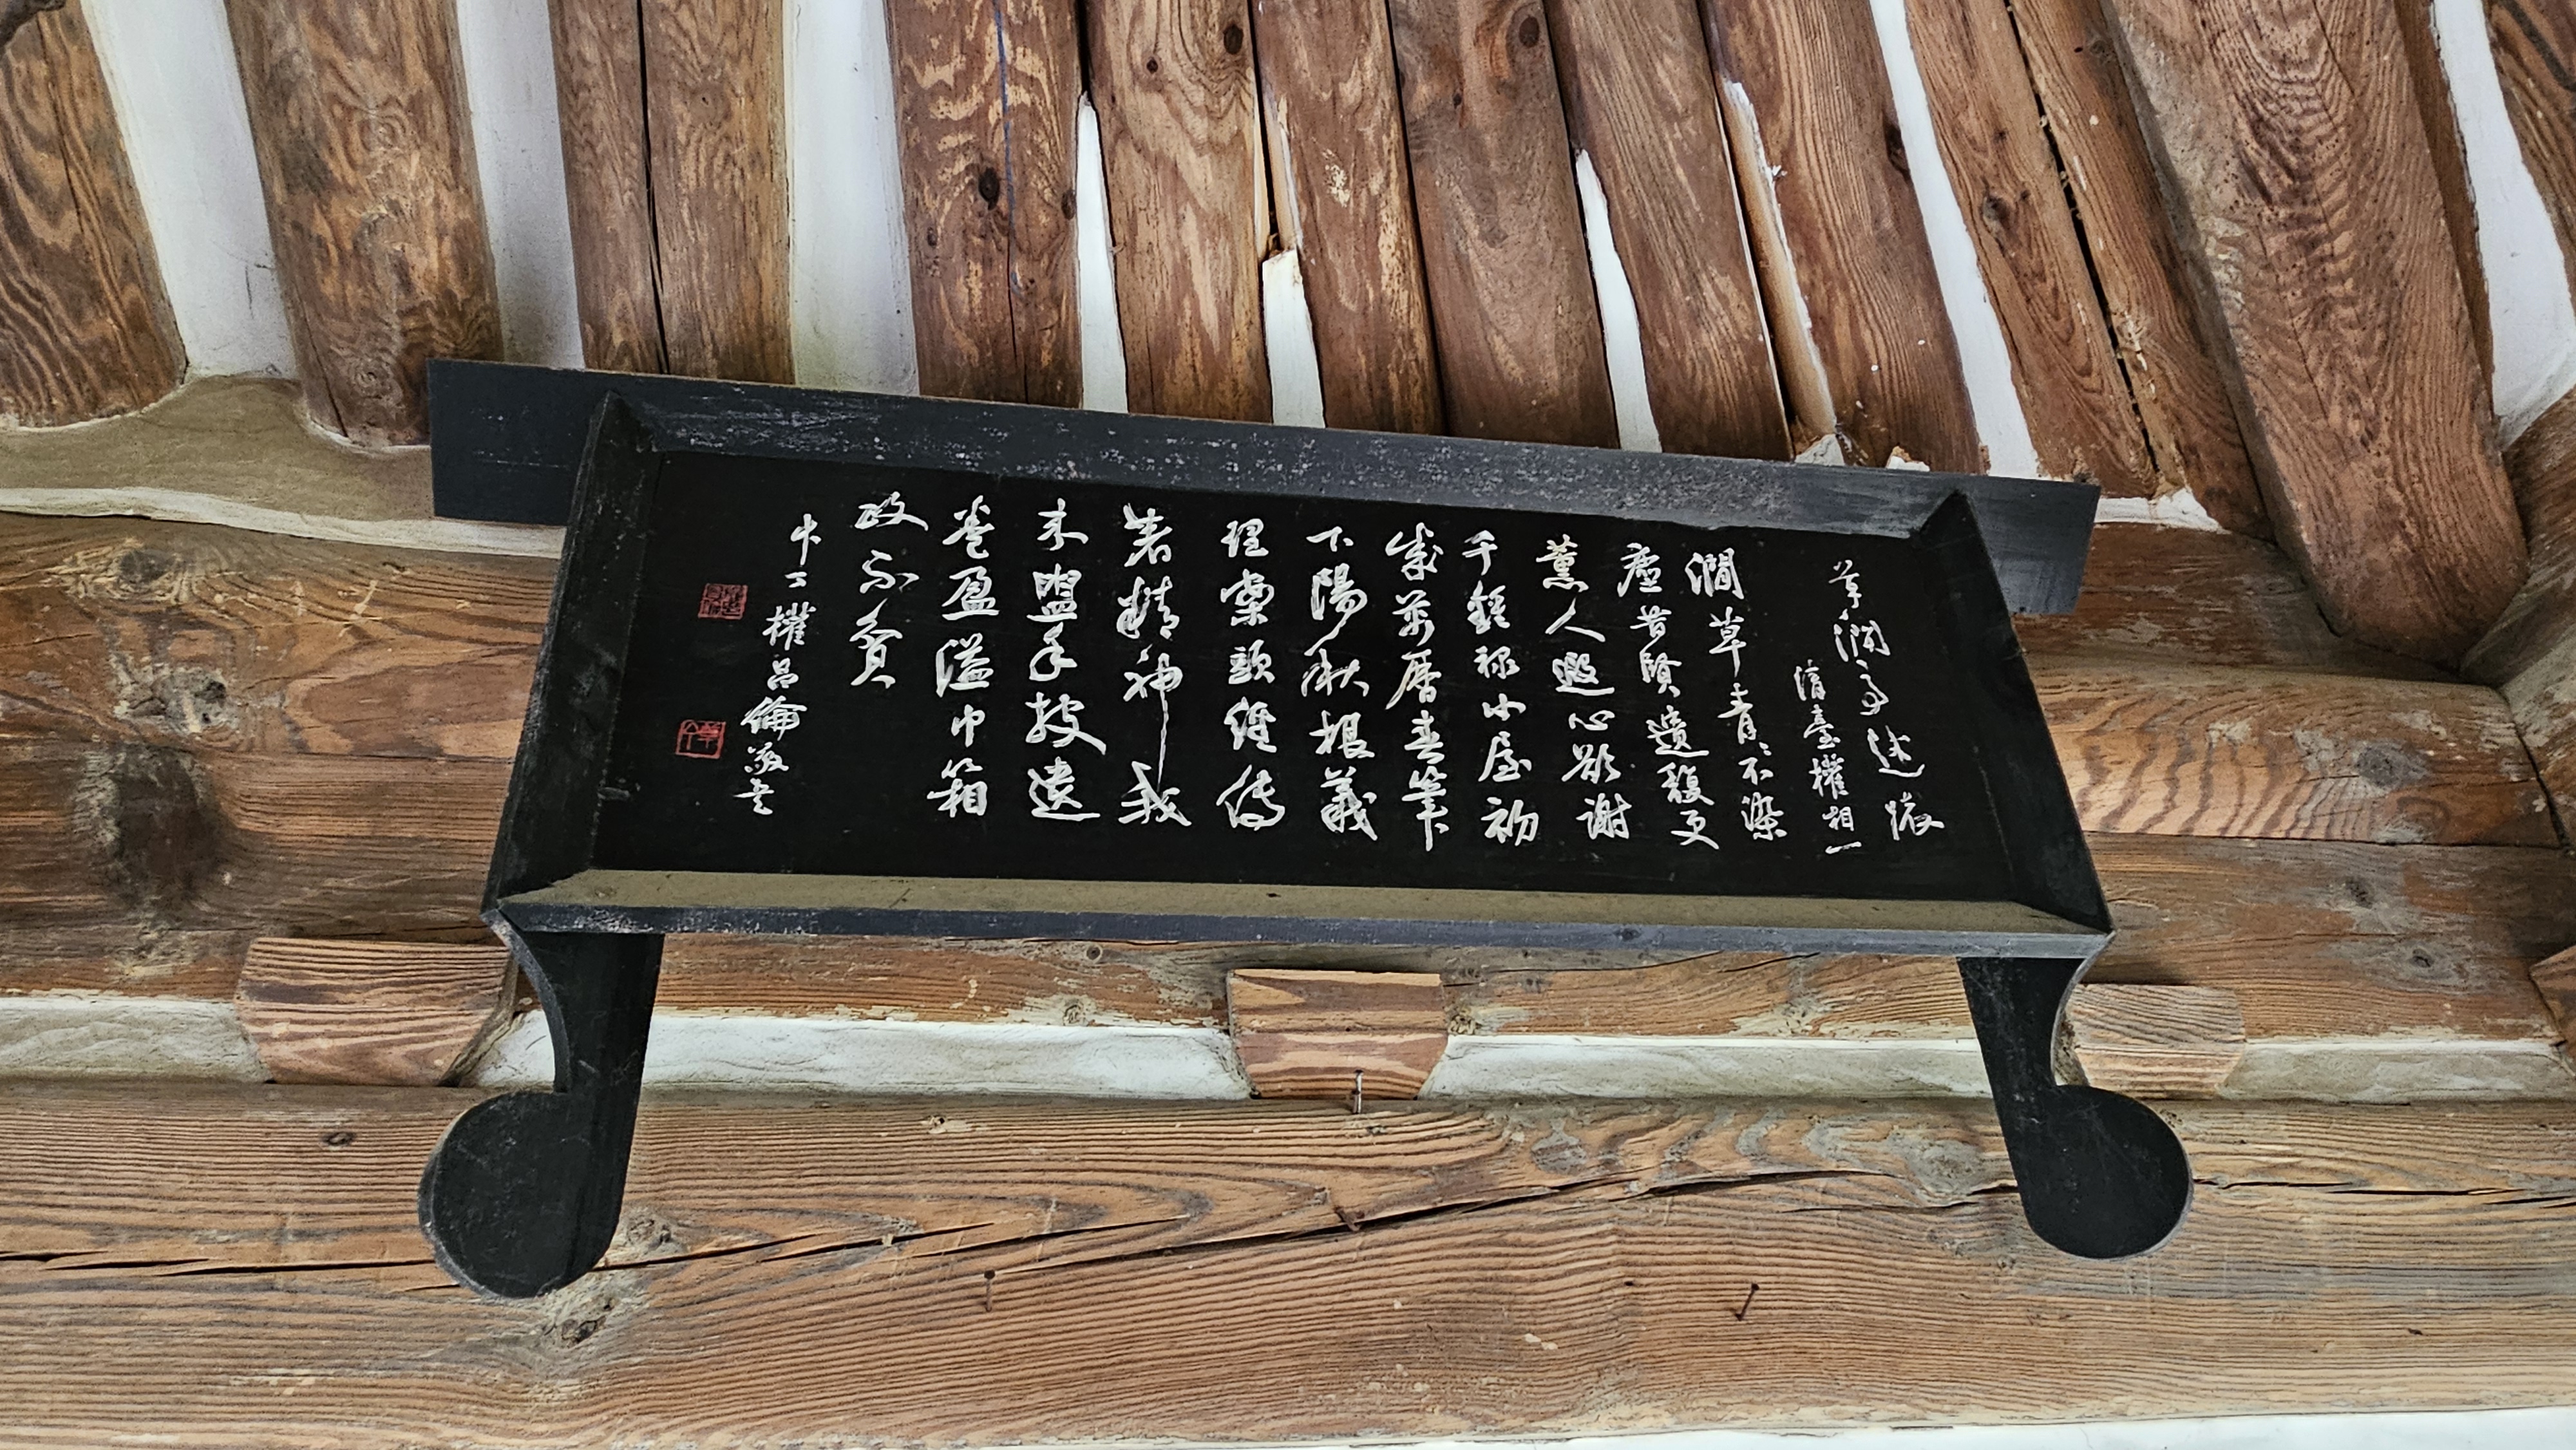 草澗亭述懷
淸臺權相一
澗草青〻不染
塵昔賢遺馥更
薰人遐心欲謝
千鍾祿小屋初
成萬曆春筆
下陽秋根義
理案頭經傳
着精神我
來盥手披遺
卷盈溢巾箱
政不貧
權呂倫敬書